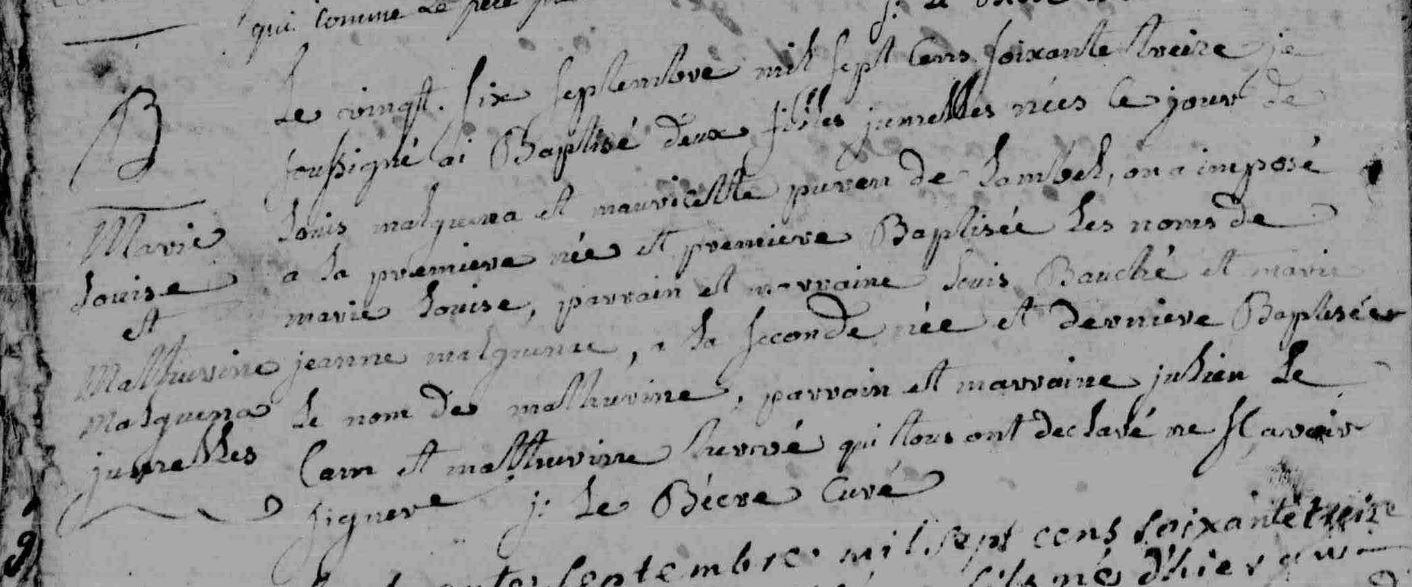 qui comme Le pere
B
Le vingt. six septembre mil sept cens soixante treize je
soussigné ai Baptisé deux filles jumelles nées ce jour de
Louis malquena et mauricette puren de Lambel, on a imposé
a la premiere née et premiere Baptisée Les noms de
marie Louise, parrain et marraine Louis Bauché et marie
jeanne malquenae, a la seconde née et derniere Baptisée
Le nom de mathurine, parrain et marraine julien Le
Cam et mathurine qui tous ont declaré ne sçavoir
signer j: Le Bécre Curé
Marie
Louise
et
Mathurine
malquena
jumelles
septembre mil sept cens soixante treize
fils né d'hier